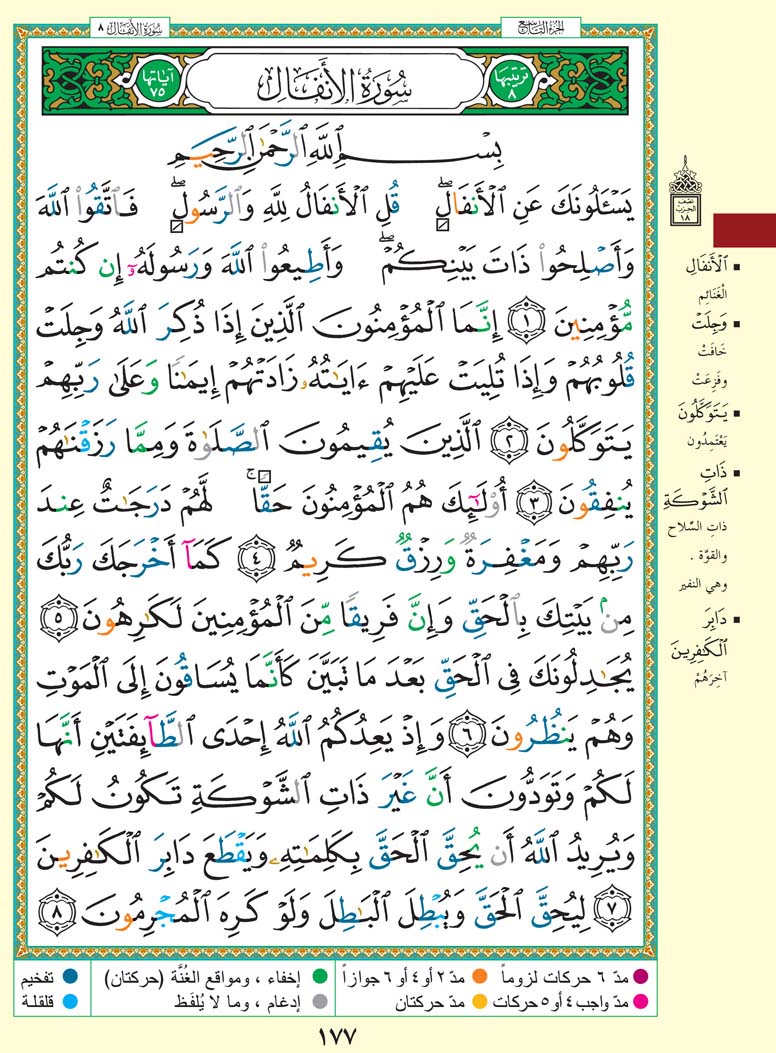 الجزء التاسع
سورة الأنفال ٨
ترتيبها ٨
سُورَةُ الأَنفَالِ
آياتها ٧٥
بِسْمِ ٱللَّهِ ٱلرَّحْمَٰنِ ٱلرَّحِيمِ
يَسْـَٔلُونَكَ عَنِ ٱلْأَنفَالِۖ قُلِ ٱلْأَنفَالُ لِلَّهِ وَٱلرَّسُولِۖ فَٱتَّقُوا۟ ٱللَّهَ
وَأَصْلِحُوا۟ ذَاتَ بَيْنِكُمْۖ وَأَطِيعُوا۟ ٱللَّهَ وَرَسُولَهُۥٓ إِن كُنتُم
مُّؤْمِنِينَ ١ إِنَّمَا ٱلْمُؤْمِنُونَ ٱلَّذِينَ إِذَا ذُكِرَ ٱللَّهُ وَجِلَتْ
قُلُوبُهُمْ وَإِذَا تُلِيَتْ عَلَيْهِمْ ءَايَٰتُهُۥ زَادَتْهُمْ إِيمَٰنًا وَعَلَىٰ رَبِّهِمْ
يَتَوَكَّلُونَ ٢ ٱلَّذِينَ يُقِيمُونَ ٱلصَّلَوٰةَ وَمِمَّا رَزَقْنَٰهُمْ
يُنفِقُونَ ٣ أُو۟لَٰٓئِكَ هُمُ ٱلْمُؤْمِنُونَ حَقًّاۚ لَّهُمْ دَرَجَٰتٌ عِندَ
رَبِّهِمْ وَمَغْفِرَةٌ وَرِزْقٌ كَرِيمٌ ٤ كَمَآ أَخْرَجَكَ رَبُّكَ
مِنۢ بَيْتِكَ بِٱلْحَقِّ وَإِنَّ فَرِيقًا مِّنَ ٱلْمُؤْمِنِينَ لَكَٰرِهُونَ ٥
يُجَٰدِلُونَكَ فِى ٱلْحَقِّ بَعْدَ مَا تَبَيَّنَ كَأَنَّمَا يُسَاقُونَ إِلَى ٱلْمَوْتِ
وَهُمْ يَنظُرُونَ ٦ وَإِذْ يَعِدُكُمُ ٱللَّهُ إِحْدَى ٱلطَّآئِفَتَيْنِ أَنَّهَا
لَكُمْ وَتَوَدُّونَ أَنَّ غَيْرَ ذَاتِ ٱلشَّوْكَةِ تَكُونُ لَكُمْ
وَيُرِيدُ ٱللَّهُ أَن يُحِقَّ ٱلْحَقَّ بِكَلِمَٰتِهِۦ وَيَقْطَعَ دَابِرَ ٱلْكَٰفِرِينَ
٧ لِيُحِقَّ ٱلْحَقَّ وَيُبْطِلَ ٱلْبَٰطِلَ وَلَوْ كَرِهَ ٱلْمُجْرِمُونَ ٨
نصف
الحزب
١٨
▪ ٱلْأَنفَالِ
الغَنَائِمِ
▪ وَجِلَتْ
خَافَتْ
وفَزِعَتْ
▪ يَتَوَكَّلُونَ
يَعْتَمِدُون
▪ ذَاتِ
ٱلشَّوْكَةِ
ذاتِ السِّلاح
والقوَّة .
وهي النفير
▪ دَابِرَ
ٱلْكَٰفِرِينَ
آخِرَهُمْ
مدّ ٦ حركات لزوماً
مدّ ٢ أو ٤ أو ٦ جوازاً
إخفاء ، ومواقع الغُنَّة (حركتان)
تفخيم
مدّ واجب ٤ أو ٥ حركات
مدّ حركتان
إدغام ، وما لا يُلفَظ
قلقلة
١٧٧